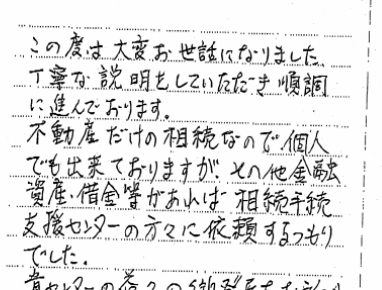 この度は大変お世話になりました。
丁寧な説明をしていただき順調
に進んでおります。
不動産だけの相続なので個人
でも出来ておりますが、その他金融
資産・借金等があれば相続手続
支援センターの方々に依頼するつもり
でした。
貴センターの